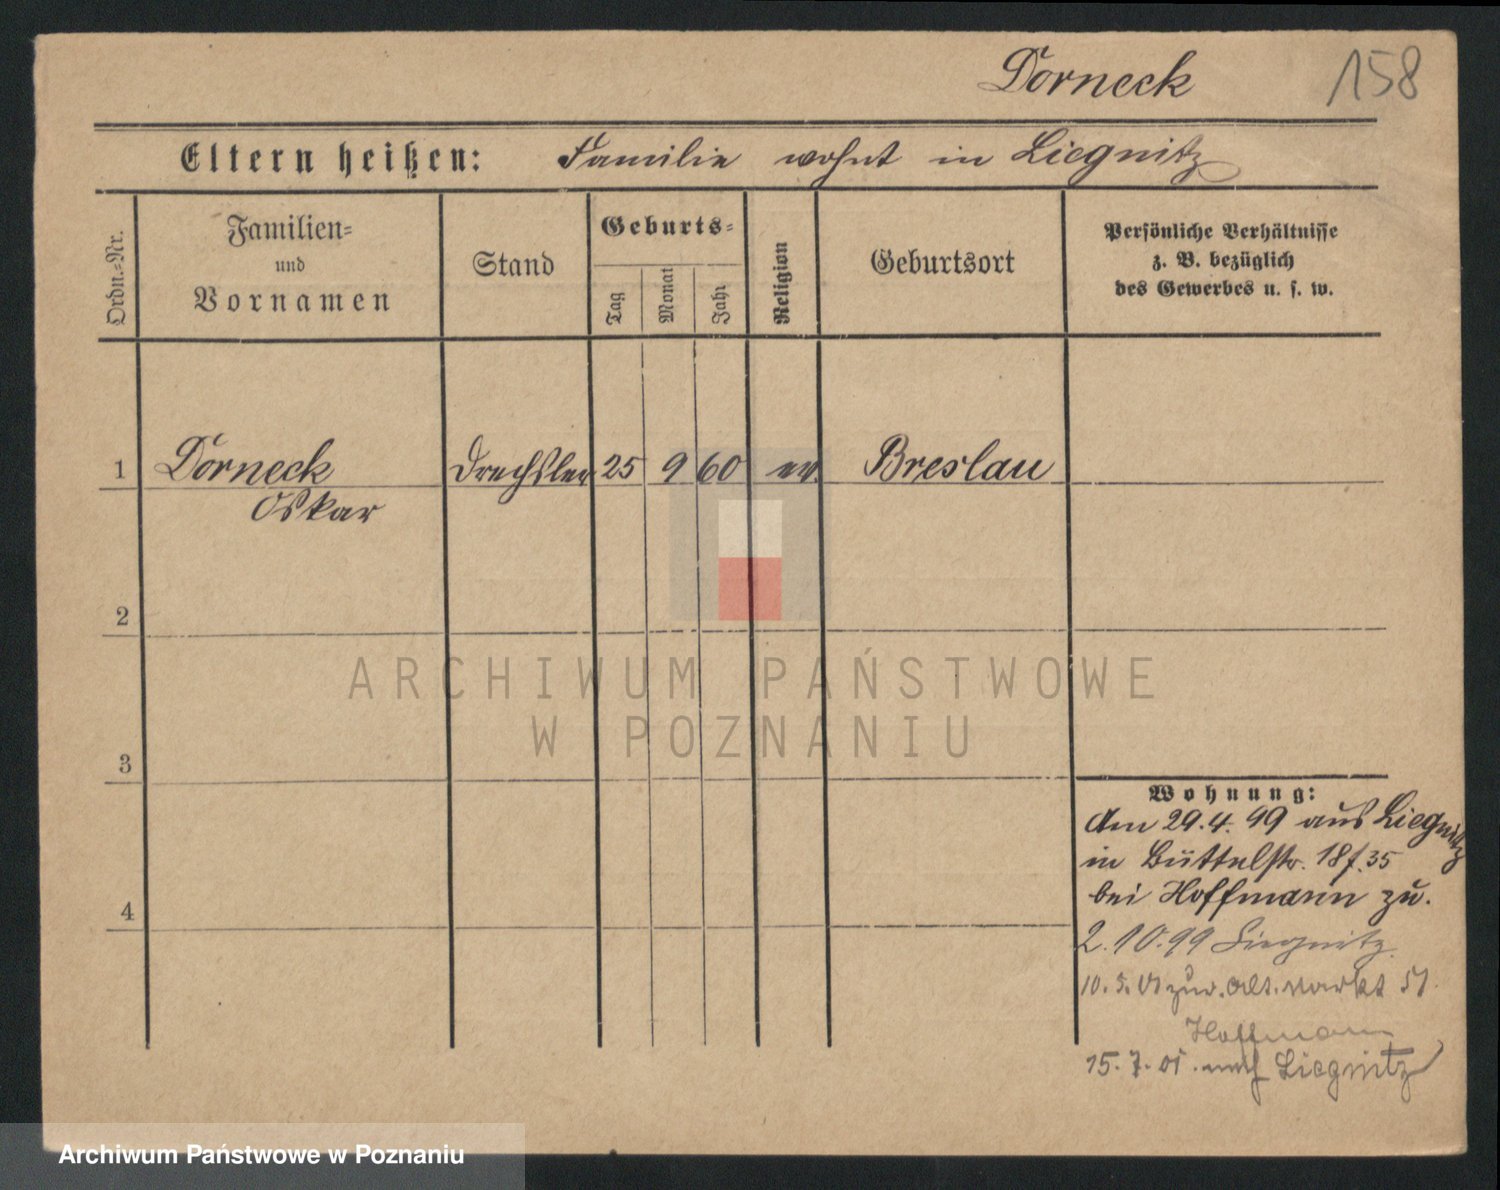 Dorneck 158
Eltern heißen: Familie wohnt in Liegnitz
Ordn.=Nr.
Familien=
und
Vornamen
Stand
Geburts=
Tag
Monat
Jahr
Religion
Geburtsort
Persönliche Verhältnisse
z. B. bezüglich
des Gewerbes u. s. w.
1 Dorneck Drechsler 25 9 60 ev. Breslau
Oskar
2
3
4
Wohnung:
Am 29.4.99 aus Liegnitz
in Büttelstr. 18 f. 35
bei Hoffmann zu.
2.10.99 Liegnitz.
10.5.01 zur. Alt. Markt 51.
Hoffmann
15.7.01. nach Liegnitz
ARCHIWUM PAŃSTWOWE
W POZNANIU
Archiwum Państwowe w Poznaniu